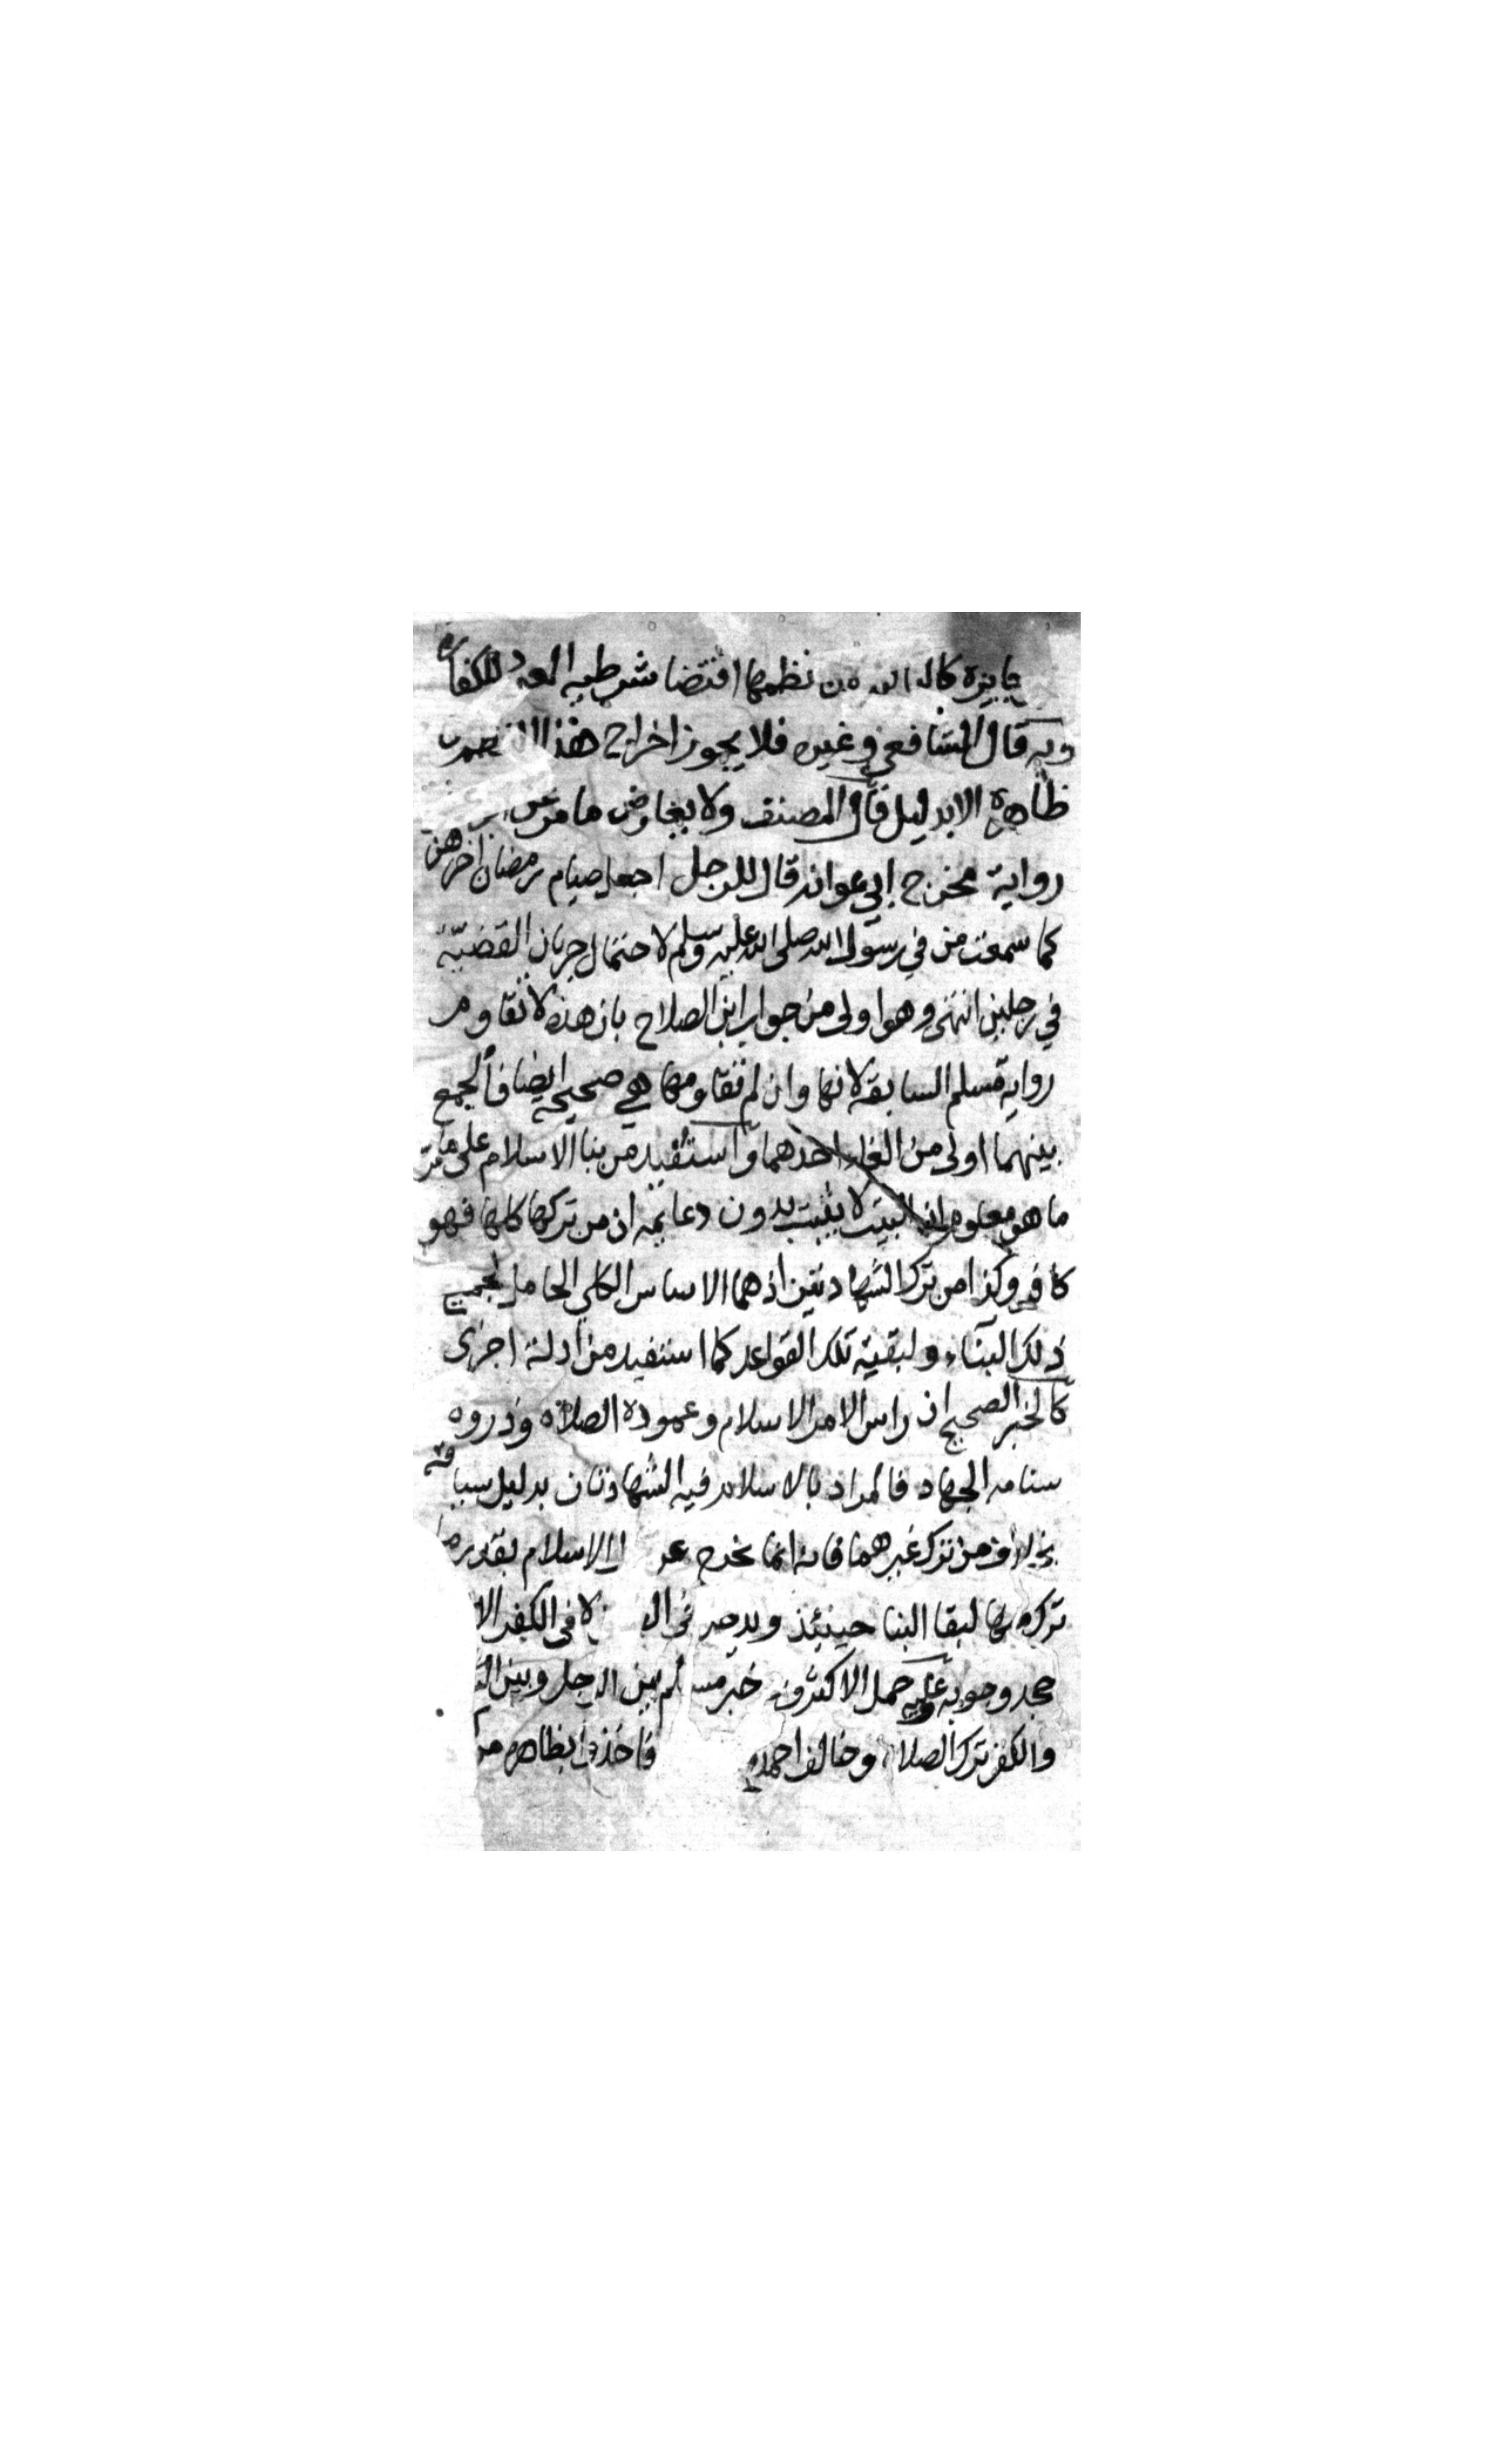 نظمها اقتضا شرطيه العود للكفاره
وبه قال الشافعي وغيره فلا يجوز اخراج هذا
ظاهره الا بدليل قال المصنف ولا يعارض ما مر عن
رواية مخرج ابي عوانه قال للرجل اجعل صيام رمضان اخرهن
كما سمعت من في رسول الله صلى الله عليه وسلم لاحتمال جريان القضيّة
في رجلين انتهى وهو اولى من جواب ابن الصلاح بان هذه لا تقاوم
رواية مسلم السابقة لانها وان لم تقاومها هي صحيحه ايضا فالجمع
بينهما اولى من الغاء احدهما واستفيد من بنا الاسلام على ما مر
ما هو معلوم ان البيت لا يثبت بدون دعايمه ان من تركها كلها فهو
كافر وكذا من ترك الشهادتين اذ هما الاساس الكلي الحامل لجميع
ذلك البنآء ولبقية تلك القواعد كما استفيد من ادلة اخرى
كالخبر الصحيح ان راس الامر الاسلام وعموده الصلاة وذروه
سنامه الجهاد فالمراد بالاسلام فيه الشهادتان بدليل سياقه
بخلاف من ترك غيرهما فانه انما يخرج عن الاسلام بقدر ما
تركه منها لبقا البنا حينئذ لا في الكفر الا
جحد وجوبه وعليه حمل الاكثرون خبر مسلم بين الرجل وبين
والكفر ترك الصلاة وخالف احمد فاخذوا بظاهره